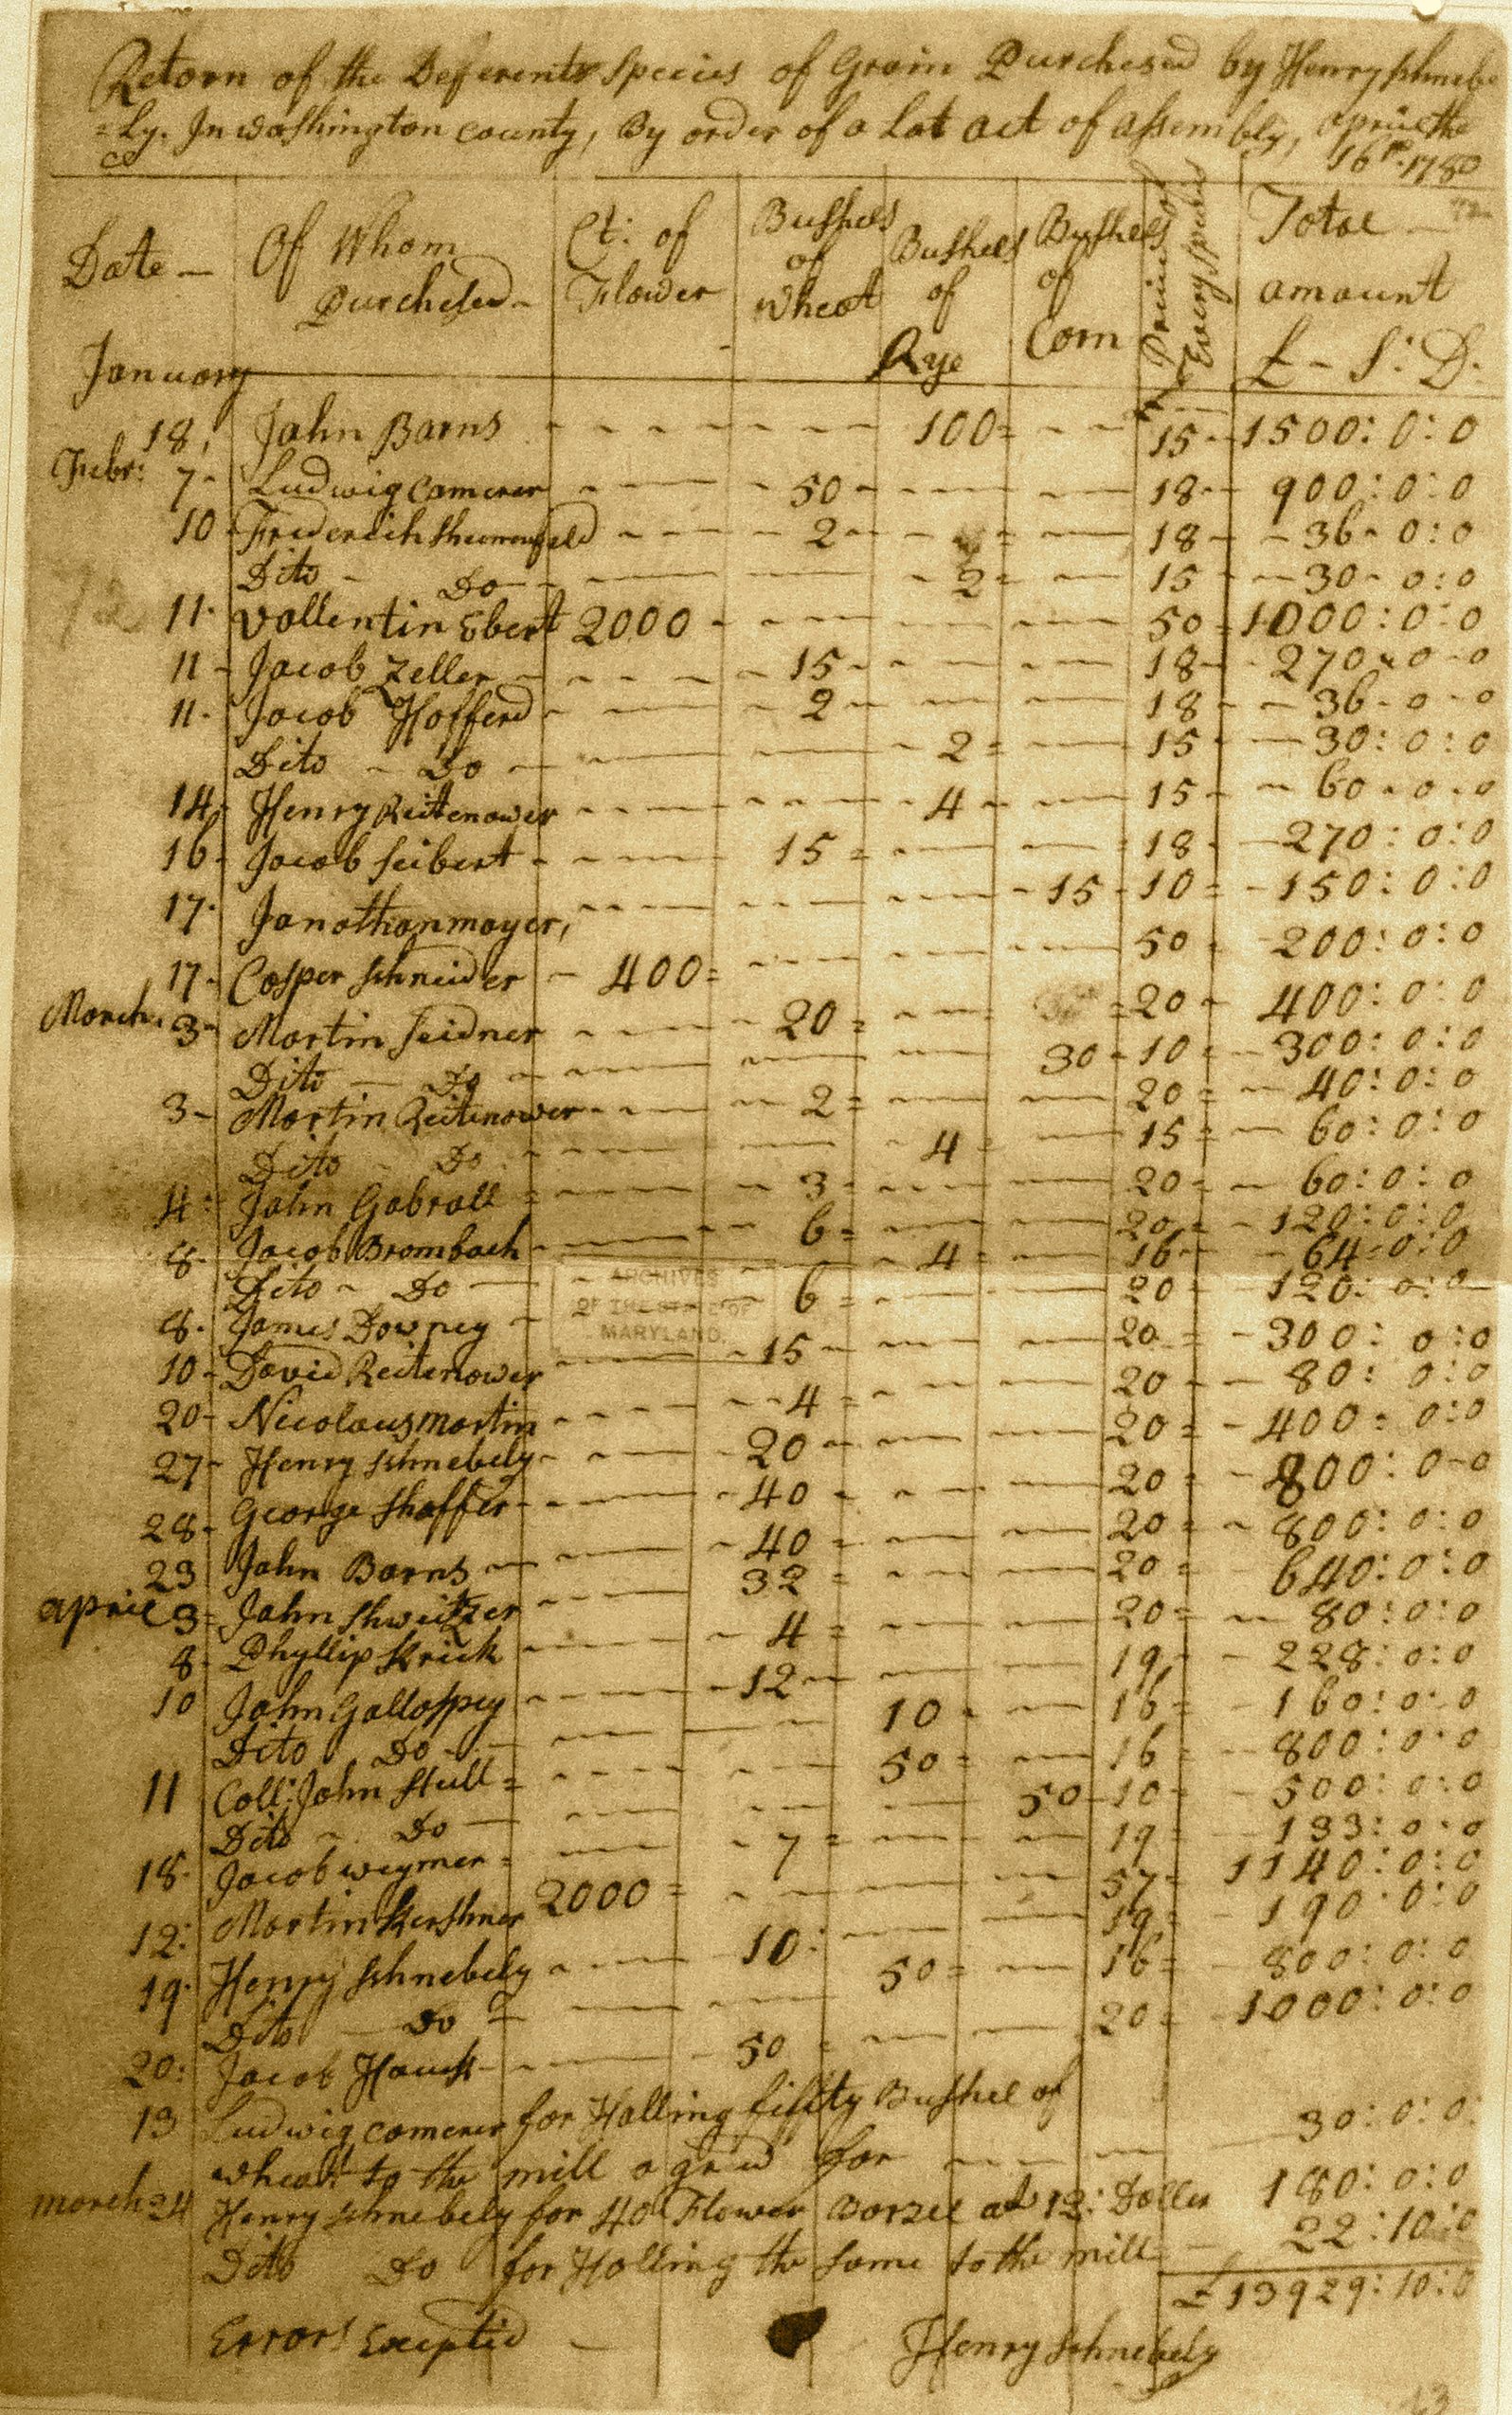 Retorn of the Deferents Species of Grain Purchesed by Henry Schnebe
=ly. In Washington county, By order of a Lat act of assembly, april the
16th 1780
Date – Of Whom Purchesed – Ct: of Flower Bushels of Wheat Bushels of Rye Bushels of Corn Prein of Every Species Total amount £ – S: D:
January
18, John Barns 100 = 15 – 1500:0:0
Febr: 7 – Ludwig Camerer 50 – 18 – 900:0:0
10 – Frederich 2 – 18 – 36 – 0:0
Dito – Do – 2 = 15 – 30 – 0:0
11 – Vallentin Ebert 2000 – 50 = 1000:0:0
11 – Jacob Zeller – 15 – 18 – 270 – 0 – 0
11 – Jacob Hofferd 2 – 18 – 36 – 0 – 0
Dito – Do – 2 = 15 – 30:0:0
14 – Henry Reitenower 4 – 15 – 60 – 0 – 0
16 – Jacob Seibert – 15 = 18 – 270:0:0
17 – Jonathan mayer, 15 – 10 = 150:0:0
17 – Casper Schneider – 400 = 50 – 200:0:0
March. 3 – Martin Seidner 20 = 20 – 400:0:0
Dito – Do – 30 – 10 = 300:0:0
3 – Martin Reitenower 2 = 20 = 40:0:0
Dito – Do – 4 = 15 = 60:0:0
4: John Gabrall = 3 = 20 = 60:0:0
8 – Jacob Brombach – 6 = 20 = 120:0:0
Dito – Do – 4 = 16 – 64:0:0
8 – James Downey – 6 = 20 – 120:0:0
10 – David Reitenower 15 – 20 = 300:0:0
20 – Nicolaus Martin 4 = 20 – 80:0:0
27 – Henry Schnebely – 20 – 20 = 400:0:0
28 – George Shaffer – 40 – 20 = 800:0–0
23 John Barns – 40 = 20 = 800:0:0
april 3 = John Shweitzer 32 = 20 = 640:0:0
8 – Phyllip Krick 4 = 20 = 80:0:0
10 John Gallospey 12 – 19, 228:0:0
Dito Do – 10 – 16 = 160:0:0
11 Coll: John Stull = 50 = 16 = 800:0:0
Dito – Do – 50 – 10 – 500:0:0
18 – Jacob Weymer = 7 = 19 = 133:0:0
12: Martin Kershner 2000 = 57 = 1140:0:0
19 – Henry Schnebely 10: 19 = 190:0:0
Dito – Do – 50 = 16 = 800:0:0
20: Jacob Hauck – 50 = 20 = 1000:0:0
13 Ludwig Camerer for Halling fiffty Bushel of
wheatt to the mill agrid for – 30:0:0
march 24 Henry Schnebely for 40 Flower Barzel at 12: Doller 180:0:0
Dito Do for Halling the same to the mill – 22:10:0
£ 13929:10:0
Errors Exceptid – Henry Schnebely
ARCHIVES
OF THE STATE OF
MARYLAND.